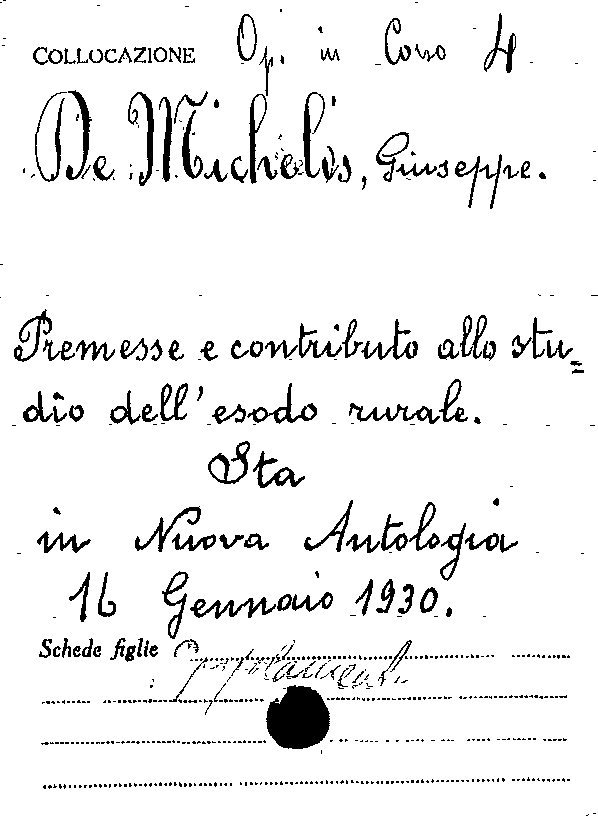 COLLOCAZIONE Op. in Corso 4
De Michelis, Giuseppe.
Premesse e contributo allo stu=
dio dell'esodo rurale.
Sta
in Nuova Antologia
16 Gennaio 1930.
Schede figlie